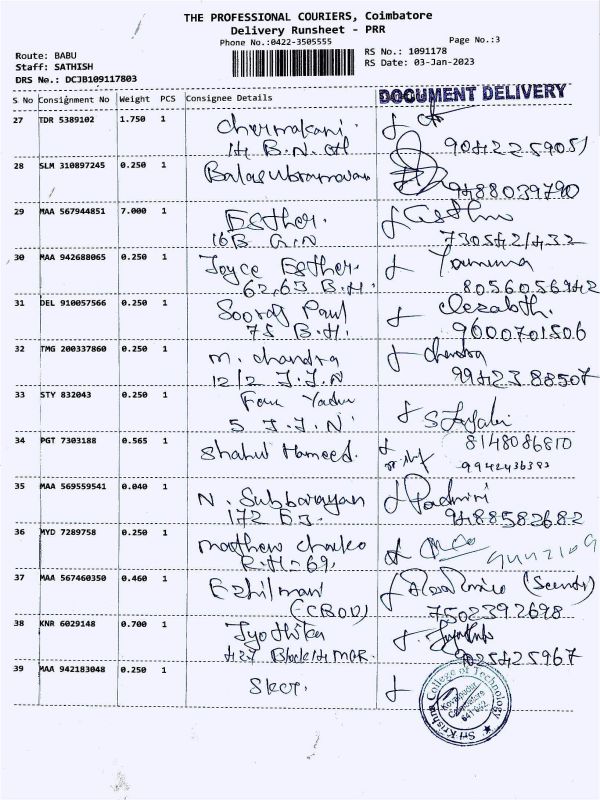 THE PROFESSIONAL COURIERS, Coimbatore
Delivery Runsheet - PRR
Phone No.:0422-3505555
Page No.:3
Route: BABU
Staff: SATHISH
DRS No.: DCJB109117803
RS No.: 1091178
RS Date: 03-Jan-2023
S No Consignment No Weight PCS Consignee Details
DOCUMENT DELIVERY
27 TDR 5389102 1.750 1
9042259051
28 SLM 310897245 0.250 1 Balasubramanian
9488039790
29 MAA 567944851 7.000 1 Esther.
16B G.N 7305421432
30 MAA 942688065 0.250 1 Joyce Esther.
62,63 B.H. 8056056942
31 DEL 910057566 0.250 1 Sooraj Paul
75 B.H. 9600701506
32 TMG 200337860 0.250 1 M. Chandra Chandra
12/2 J.J.N 9942388507
33 STY 832043 0.250 1
5 J.J.N
34 PGT 7303188 0.565 1 Shahul Hameed. 8148086810
9942436383
35 MAA 569559541 0.040 1 N. Subbarayan Padmini
172 9488582682
36 MYD 7289758 0.250 1 Mathew Chacko
R.H-69.
37 MAA 567460350 0.460 1 Ezhilmani
7502392698
38 KNR 6029148 0.700 1 Jyothika
427 Block 14 9025425967
39 MAA 942183048 0.250 1 Skct.
Sri Krishna College of Technology
Kovaipudur
Coimbatore
641 042